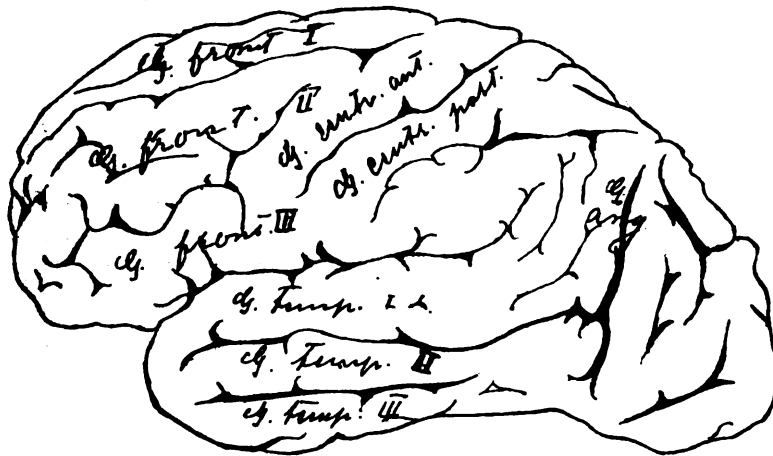 G. front I
G. front. II
G. centr. ant.
G. centr. post.
G. Ang
G. front. III
G. temp. I
G. temp. II
G. temp. III